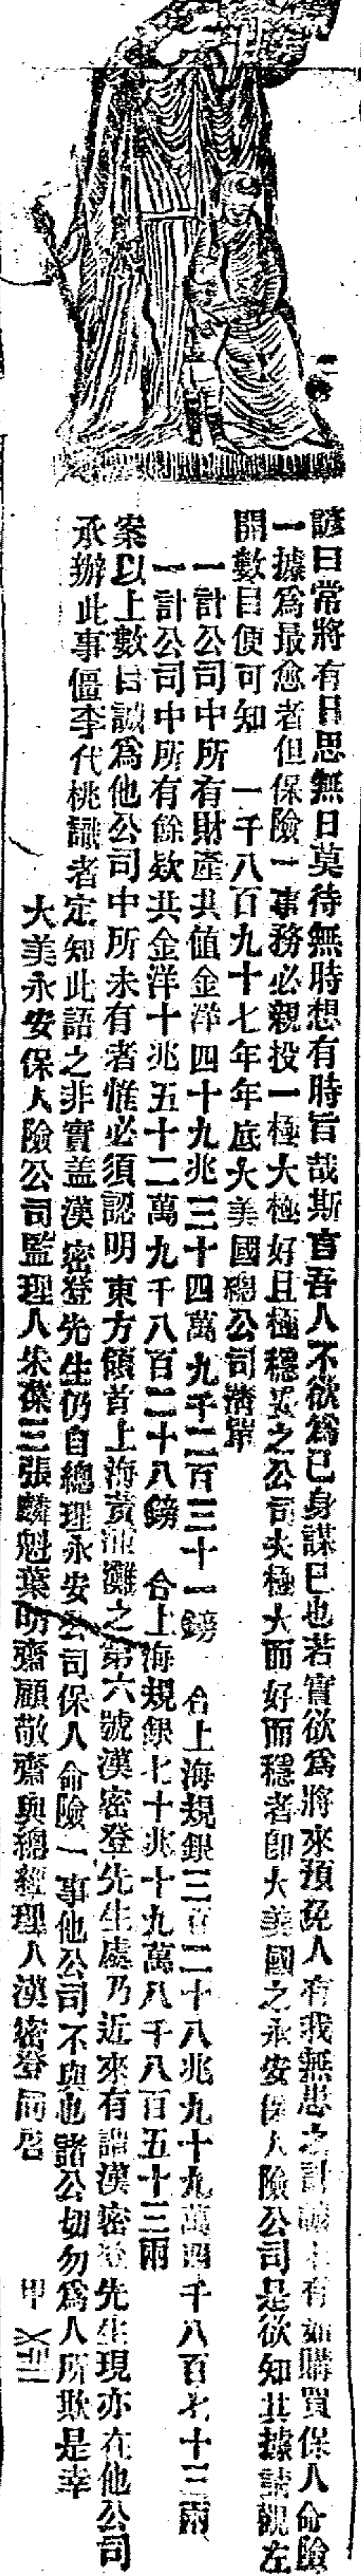 諺曰常將有日思無日莫待無時想有時旨哉斯言吾人不欲為己身謀已也若實欲為將來預免人有我無患之計誠未有如購買保人命險
一據為最愈者但保險一事務必親投一極大極好且極穩妥之公司夫極大而好而穩者即大美國之永安保人險公司是欲知其據請觀左
開數目便可知　一千八百九十七年年底大美國總公司清單
一計公司中所有財產共值金洋四十九兆三十四萬九千二百三十一鎊　合上海規銀三百二十八兆九十九萬四千八百七十三兩
一計公司中所有餘欵共金洋十兆五十二萬九千八百二十八鎊　合上海規銀七十兆十九萬八千八百五十三兩
案以上數目誠為他公司中所未有者惟必須認明東方領首上海黃浦灘之第六號漢密登先生處乃近來有謂漢密登先生現亦在他公司
承辦此事僵李代桃識者定知此語之非實盖漢密登先生仍自總理永安公司保人命險一事他公司不與也諸公切勿為人所欺是幸
大美永安保人險公司監理人朱葆三張麟魁葉明齋顧敬齋與總經理人漢密登同啓
甲